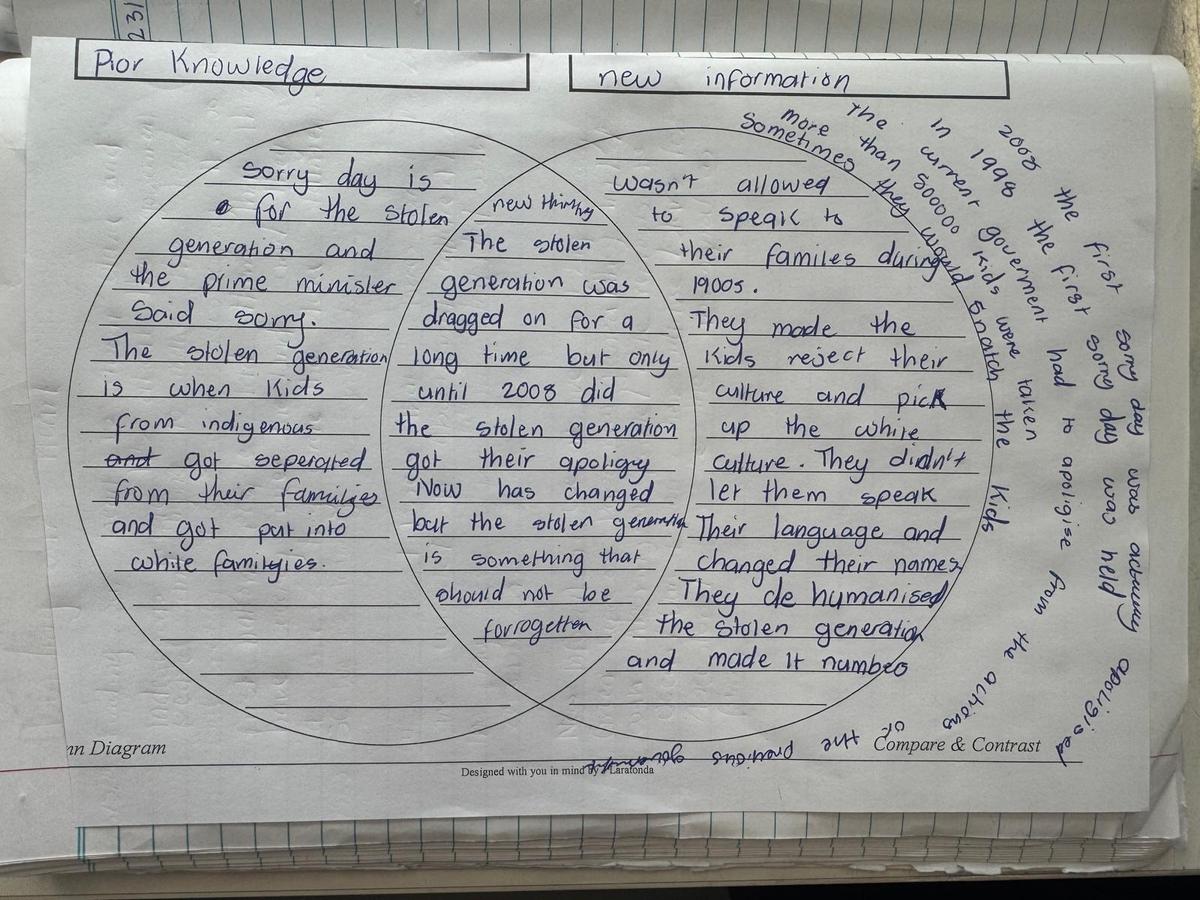 231
Pior Knowledge
new information
Sorry day is
for the stolen
generation and
the prime minister
Said sorry.
The stolen generation
is when kids
from indigenous
and got seperated
from their familgies
and got put into
white familgies.
new thinking
The stolen
generation was
dragged on for a
long time but only
until 2008 did
the stolen generation
got their apoligy
Now has changed
but the stolen generation
is something that
should not be
forrogetten
wasn't allowed
to speak to
their familes during
1900s.
They made the
kids reject their
culture and pick
up the white
culture. They didn't
let them speak
Their language and
changed their names
They de humanised
the stolen generation
and made it numbes
Sometimes they would snatch the kids
more than 500000 kids were taken
The current government had to apoligise from the actions of the previous government
In 1998 the first sorry day was held
2008 the first sorry day was actually apoligised
nn Diagram
Compare & Contrast
Designed with you in mind by Laratonda